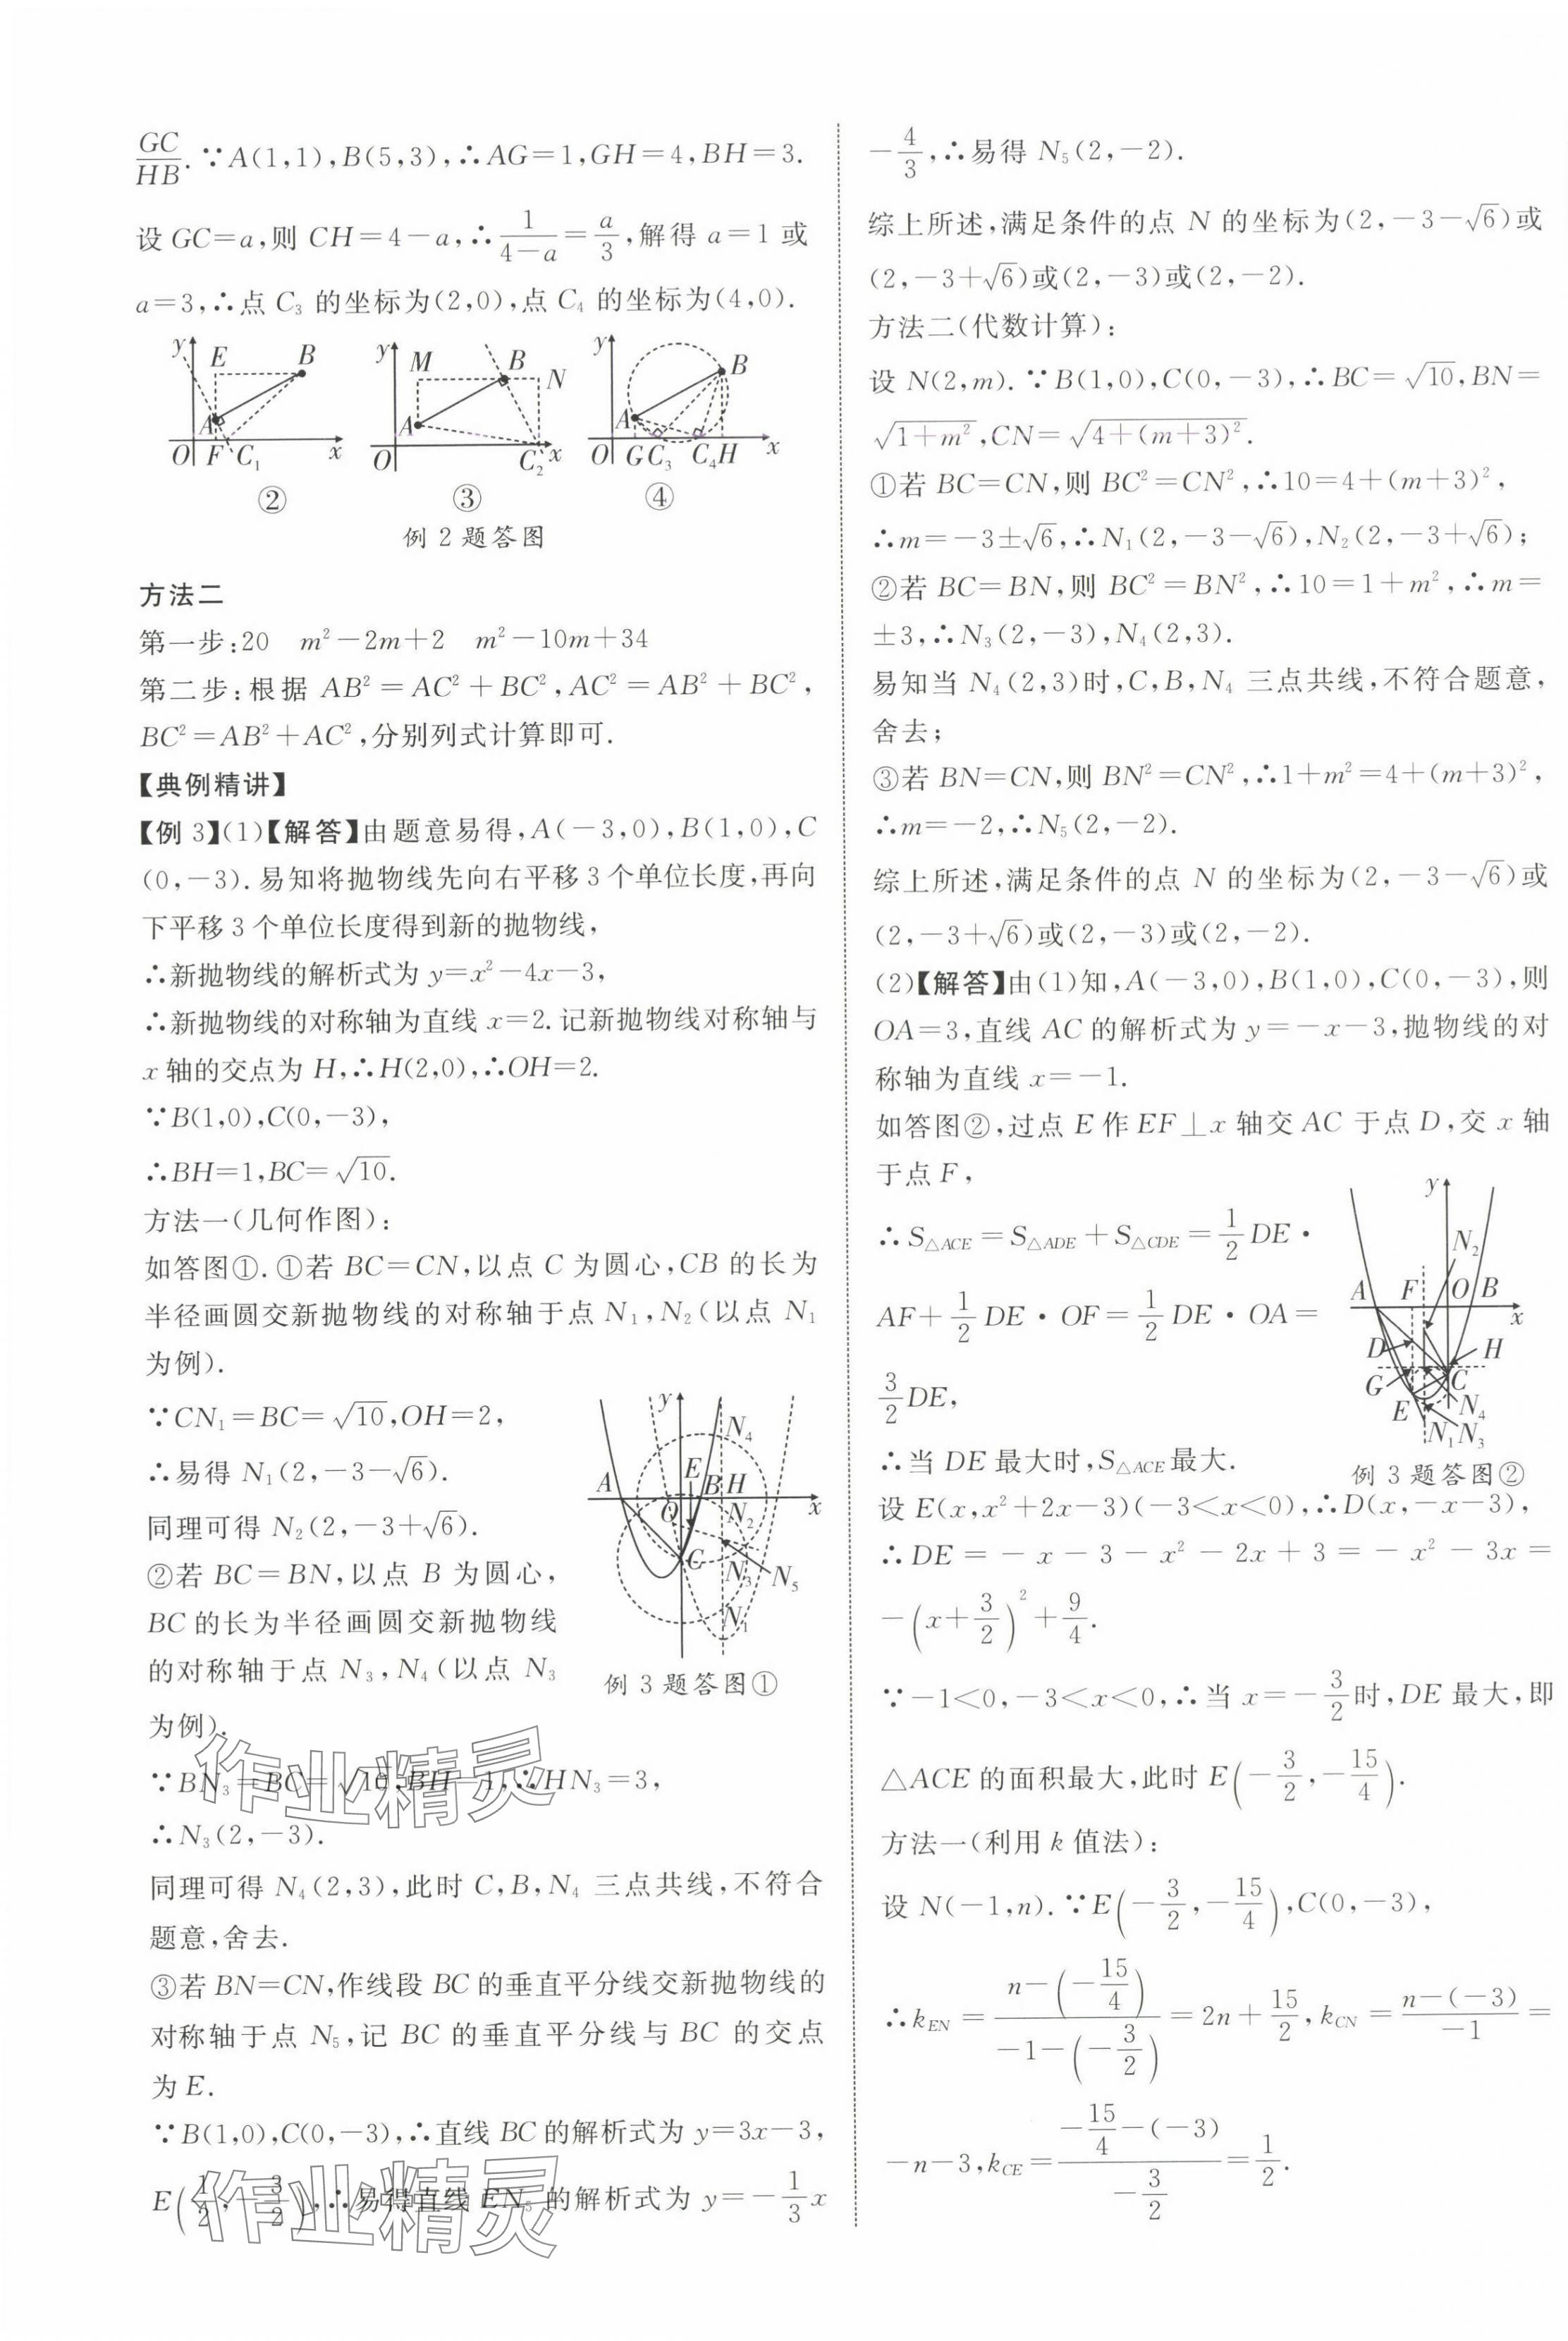 GC/HB.∵A(1,1),B(5,3),∴AG=1,GH=4,BH=3.
设 GC=a,则 CH=4-a,∴1/(4-a)=a/3,解得 a=1 或
a=3,∴点 C₃ 的坐标为(2,0),点 C₄ 的坐标为(4,0).
y E B A O F C₁ x
y M B N A O C₂ x
y B A O G C₃ C₄ H x
② ③ ④
例 2 题答图
方法二
第一步:20 m²-2m+2 m²-10m+34
第二步:根据 AB²=AC²+BC²,AC²=AB²+BC²,
BC²=AB²+AC²,分别列式计算即可.
【典例精讲】
【例 3】(1)【解答】由题意易得,A(-3,0),B(1,0),C
(0,-3).易知将抛物线先向右平移 3 个单位长度,再向
下平移 3 个单位长度得到新的抛物线,
∴新抛物线的解析式为 y=x²-4x-3,
∴新抛物线的对称轴为直线 x=2.记新抛物线对称轴与
x 轴的交点为 H,∴H(2,0),∴OH=2.
∵B(1,0),C(0,-3),
∴BH=1,BC=√10.
方法一(几何作图):
如答图①.①若 BC=CN,以点 C 为圆心,CB 的长为
半径画圆交新抛物线的对称轴于点 N₁,N₂(以点 N₁
为例).
∵CN₁=BC=√10,OH=2,
∴易得 N₁(2,-3-√6).
同理可得 N₂(2,-3+√6).
②若 BC=BN,以点 B 为圆心,
BC 的长为半径画圆交新抛物线
的对称轴于点 N₃,N₄(以点 N₃
为例).
y N₄ E A B H x O N₂ C N₃ N₅ N₁
例 3 题答图①
∵BN₃=BC=√10,BH=1,∴HN₃=3,
∴N₃(2,-3).
同理可得 N₄(2,3),此时 C,B,N₄ 三点共线,不符合
题意,舍去.
③若 BN=CN,作线段 BC 的垂直平分线交新抛物线的
对称轴于点 N₅,记 BC 的垂直平分线与 BC 的交点
为 E.
∵B(1,0),C(0,-3),∴直线 BC 的解析式为 y=3x-3,
E(1/2,-3/2),∴易得直线 EN₅ 的解析式为 y=-1/3x
-4/3,∴易得 N₅(2,-2).
综上所述,满足条件的点 N 的坐标为(2,-3-√6)或
(2,-3+√6)或(2,-3)或(2,-2).
方法二(代数计算):
设 N(2,m).∵B(1,0),C(0,-3),∴BC=√10,BN=
√(1+m²),CN=√(4+(m+3)²).
①若 BC=CN,则 BC²=CN²,∴10=4+(m+3)²,
∴m=-3±√6,∴N₁(2,-3-√6),N₂(2,-3+√6);
②若 BC=BN,则 BC²=BN²,∴10=1+m²,∴m=
±3,∴N₃(2,-3),N₄(2,3).
易知当 N₄(2,3)时,C,B,N₄ 三点共线,不符合题意,
舍去;
③若 BN=CN,则 BN²=CN²,∴1+m²=4+(m+3)²,
∴m=-2,∴N₅(2,-2).
综上所述,满足条件的点 N 的坐标为(2,-3-√6)或
(2,-3+√6)或(2,-3)或(2,-2).
(2)【解答】由(1)知,A(-3,0),B(1,0),C(0,-3),则
OA=3,直线 AC 的解析式为 y=-x-3,抛物线的对
称轴为直线 x=-1.
如答图②,过点 E 作 EF⊥x 轴交 AC 于点 D,交 x 轴
于点 F,
∴S△ACE=S△ADE+S△CDE=1/2DE·
AF+1/2DE·OF=1/2DE·OA=
3/2DE,
∴当 DE 最大时,S△ACE最大.
y N₂ A F O B x D H G C E N₄ N₁ N₃
例 3 题答图②
设 E(x,x²+2x-3)(-3<x<0),∴D(x,-x-3),
∴DE=-x-3-x²-2x+3=-x²-3x=
-(x+3/2)²+9/4.
∵-1<0,-3<x<0,∴当 x=-3/2时,DE 最大,即
△ACE 的面积最大,此时 E(-3/2,-15/4).
方法一(利用 k 值法):
设 N(-1,n).∵E(-3/2,-15/4),C(0,-3),
∴k_EN=(n-(-15/4))/(-1-(-3/2))=2n+15/2,k_CN=(n-(-3))/(-1)=
-n-3,k_CE=(-15/4-(-3))/(-3/2)=1/2.
作业精灵
作业精灵